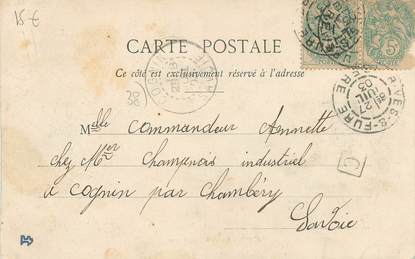 15 €
CARTE POSTALE
Ce côté est exclusivement réservé à l'adresse
Melle Commandeur Annette
chez Mr Champenois industriel
à Cognin par Chambéry
Savoie
5
RIVES-S-FURE
21
JUIL
03
COGNIN
C